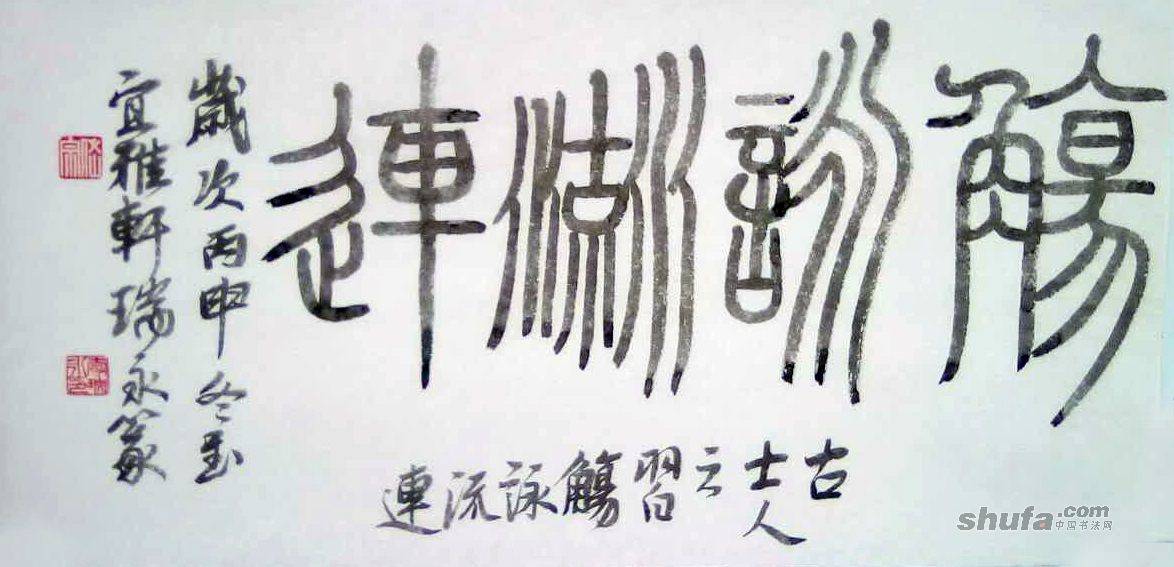 觴詠流連
古士人之習觴詠流連
歲次丙申冬至
宜雅軒瑞永篆
shufa.com
中国书法网